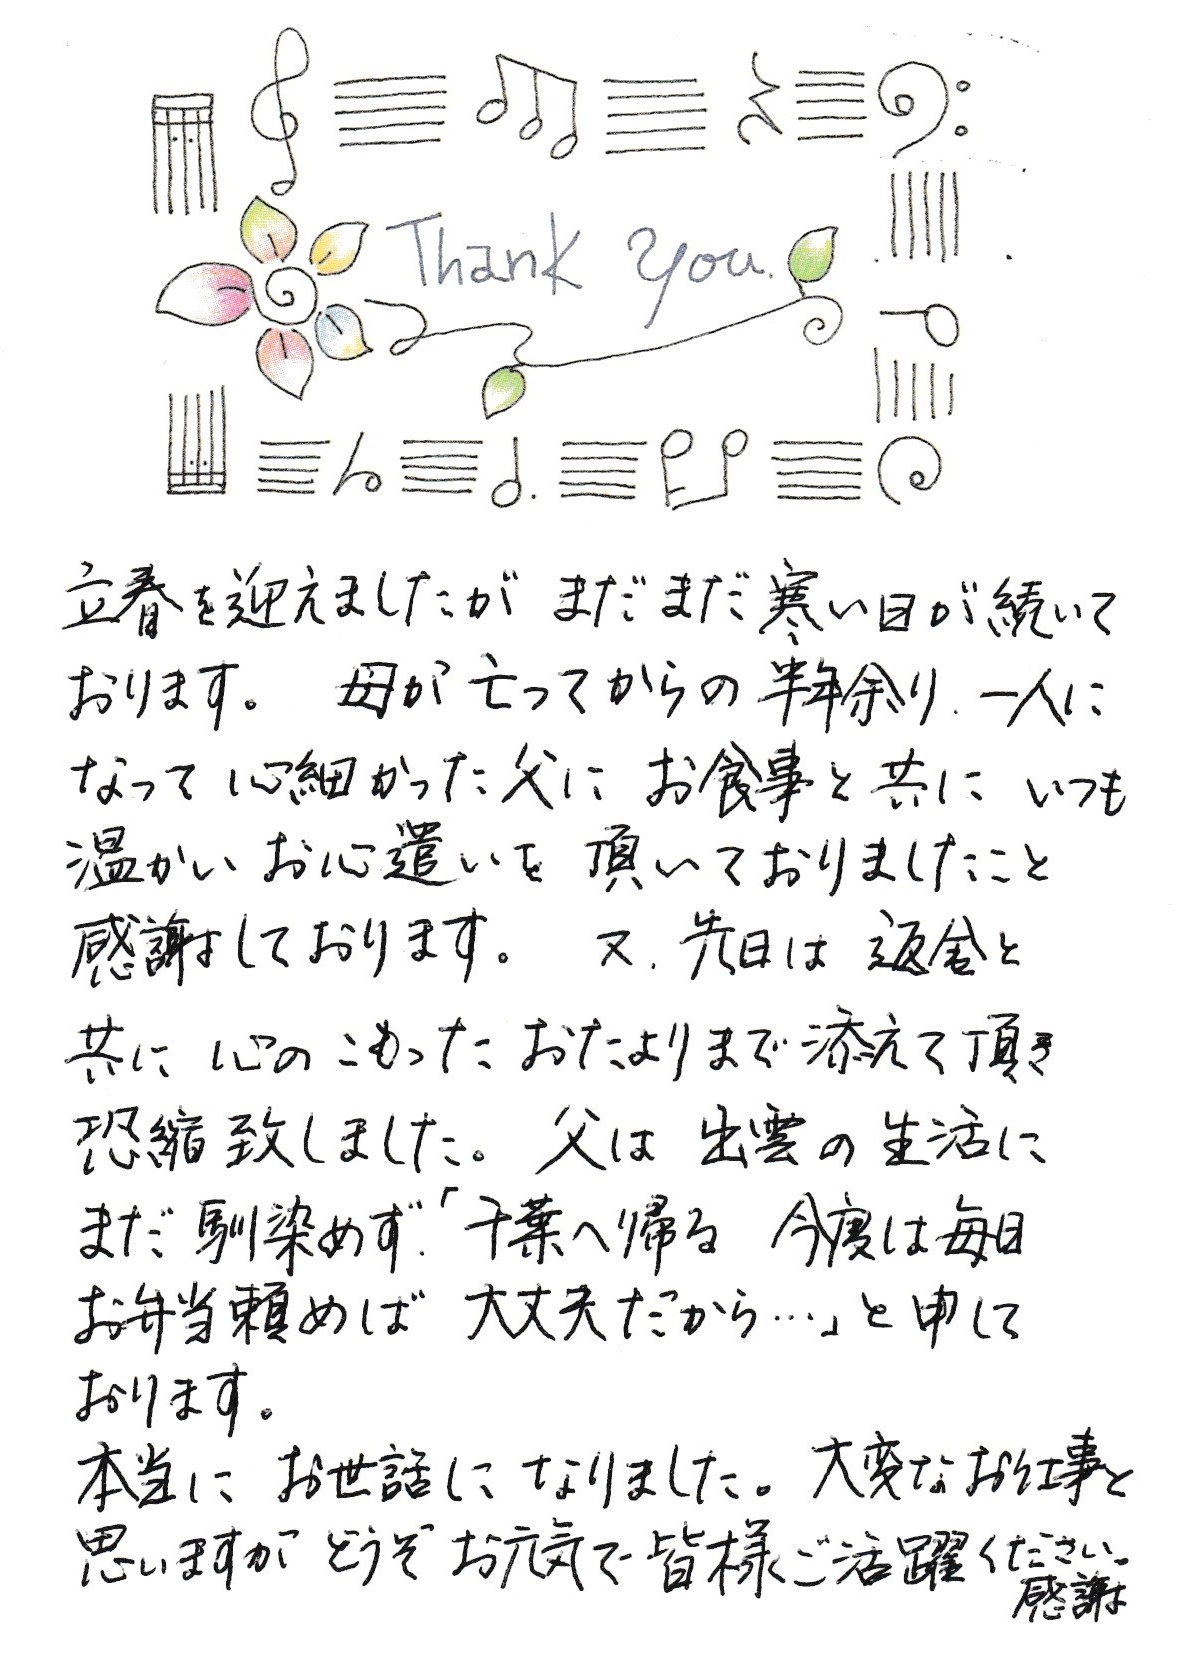 Thank You.
立春を迎えましたが まだまだ寒い日が続いて
おります。 母が亡ってからの半年余り、一人に
なって心細かった父に お食事と共に いつも
温かい お心遣いを 頂いておりましたこと
感謝しております。 又、先日は 返金と
共に 心の こもった おたよりまで添えて頂き
恐縮致しました。 父は 出雲の生活に
まだ 馴染めず、「千葉へ帰る 今度は毎日
お弁当頼めば 大丈夫だから…」と申して
おります。
本当に お世話に なりました。 大変なお仕事と
思いますが どうぞ お元気で 皆様ご活躍ください。
感謝